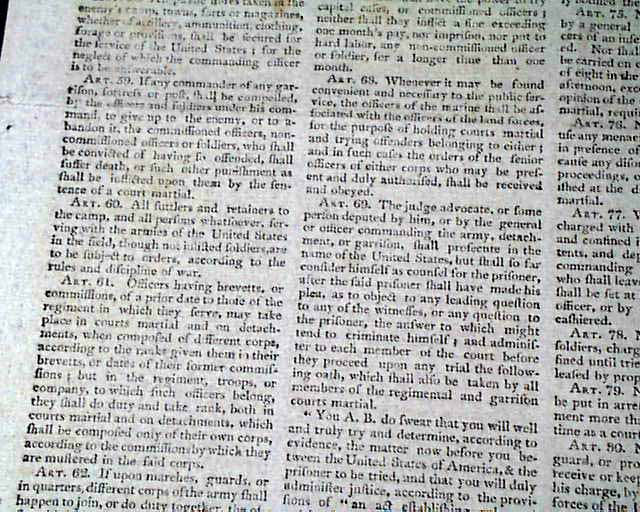 enemy's camp, towns, forts or magazines,
whether of artillery, ammunition, clothing,
forage or provisions, shall be secured for
the service of the United States; for the
neglect of which the commanding officer
is to be answerable.
ART. 59. If any commander of any gar-
rison, fortress or post, shall be compelled,
by the officers and soldiers under his com-
mand, to give up to the enemy, or to a-
bandon it, the commissioned officers, non-
commissioned officers or soldiers, who shall
be convicted of having so offended, shall
suffer death, or such other punishment as
shall be inflicted upon them by the sen-
tence of a court martial.
ART. 60. All suttlers and retainers to
the camp, and all persons whatsoever, ser-
ving with the armies of the United States
in the field, though not inlisted soldiers, are
to be subject to orders, according to the
rules and discipline of war.
ART. 61. Officers having brevetts, or
commissions, of a prior date to those of the
regiment in which they serve, may take
place in courts martial and on detach-
ments, when composed of different corps,
according to the ranks given them in their
brevetts, or dates of their former commis-
sions; but in the regiment, troops, or
company, to which such officers belong,
they shall do duty and take rank, both in
courts martial and on detachments, which
shall be composed only of their own corps,
according to the commissions by which they
are mustered in the said corps.
ART. 62. If upon marches, guards, or
in quarters, different corps of the army shall
happen to join, or do duty together, the of-
capital cases, or commissioned officers;
neither shall they inflict a fine exceeding
one month's pay, nor imprison, nor put to
hard labor, any non-commissioned officer
or soldier, for a longer time than one
month.
ART. 68. Whenever it may be found
convenient and necessary to the public ser-
vice, the officers of the marine shall be as-
sociated with the officers of the land forces,
for the purpose of holding courts martial
and trying offenders belonging to either;
and in such cases the orders of the senior
officers of either corps who may be pres-
ent and duly authorised, shall be received
and obeyed.
ART. 69. The judge advocate, or some
person deputed by him, or by the general
or officer commanding the army, detach-
ment, or garrison, shall prosecute in the
name of the United States, but shall so far
consider himself as counsel for the prisoner,
after the said prisoner shall have made his
plea, as to object to any leading question
to any of the witnesses, or any question to
the prisoner, the answer to which might
tend to criminate himself; and adminis-
ter to each member of the court before
they proceed upon any trial the follow-
ing oath, which shall also be taken by all
members of the regimental and garrison
courts martial.
"You A. B. do swear that you will well
and truly try and determine, according to
evidence, the matter now before you be-
tween the United States of America, & the
prisoner to be tried, and that you will duly
administer justice, according to the provi-
sions of "an act establishing
ART. 75.
by a general
cers of
ed. Nor shall
be carried on
of eight in the
afternoon, exc
opinion of the
martial, requi
ART. 76. N
use any mena
in presence of
cause any disor
proceedings, o
ished at the d
martial.
ART. 77.
charged with
and confined
tents, and dep
commanding
who shall leave
shall be set at
officer, or by
cashiered.
ART. 78. N
soldiers, charge
fined until trie
leased by prop
ART. 79. N
be put in arre
ment more tha
time as a court
ART. 80. N
guard, or pro
receive or keep
his charge, by
forces of the